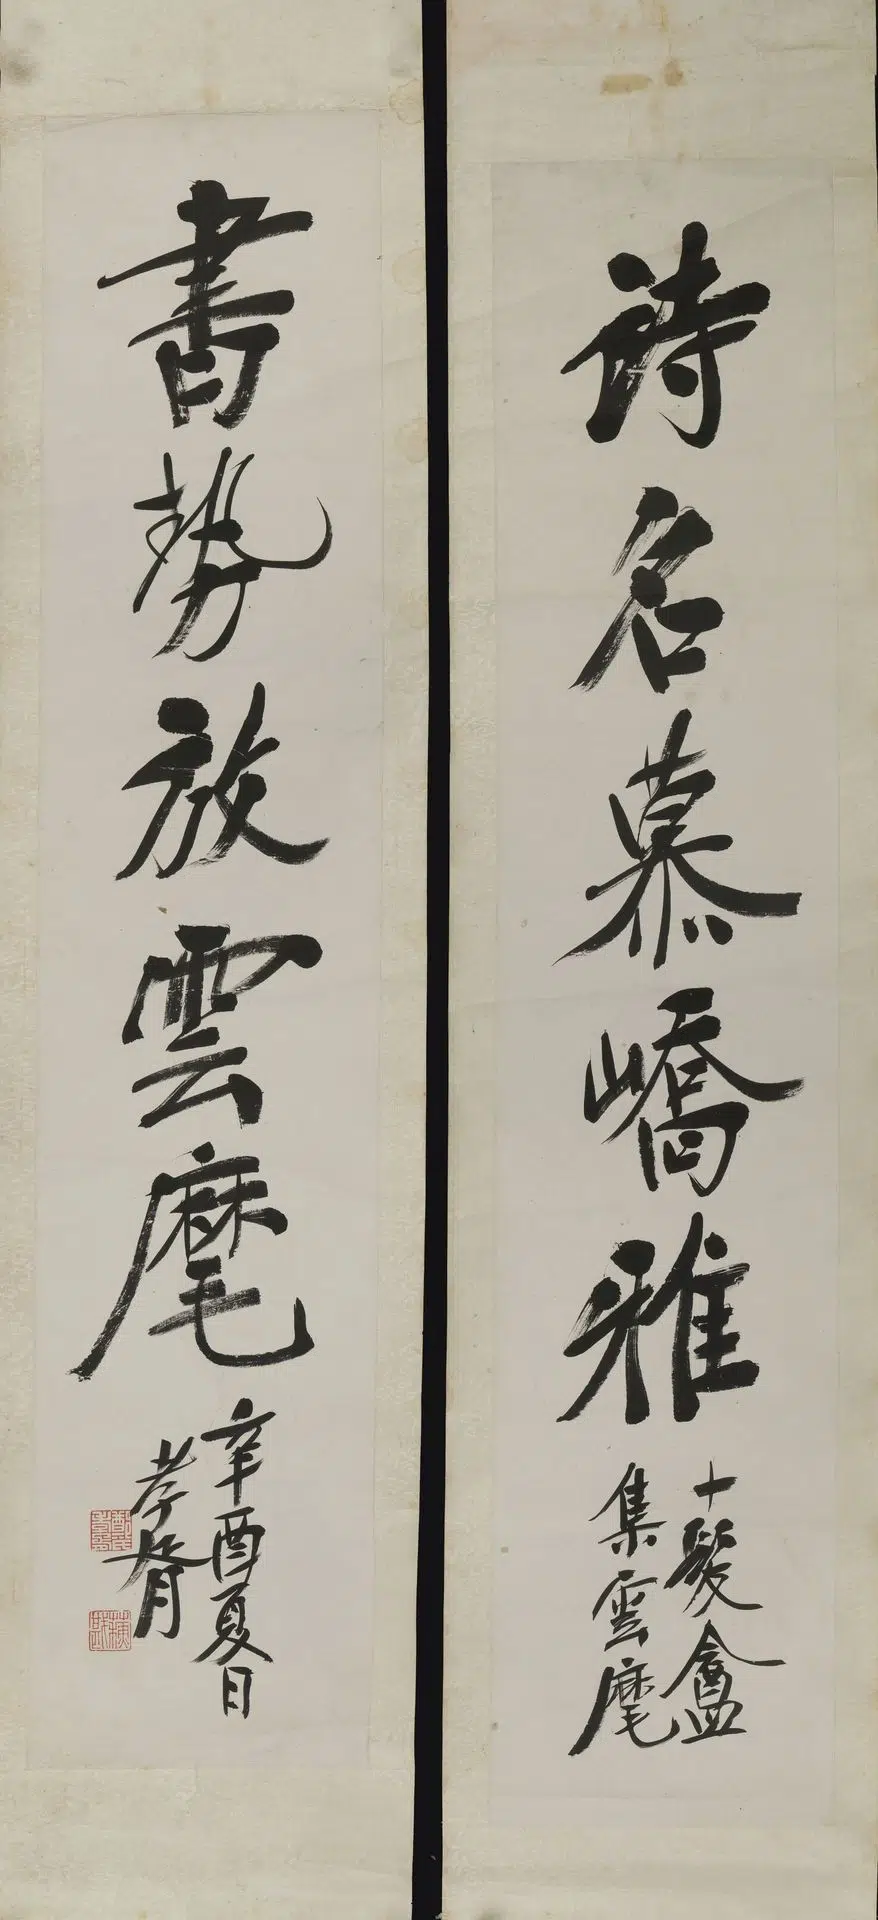 詩名慕嶠雅
十髮盦
集雲麾
書勢放雲麾
辛酉夏日
孝胥